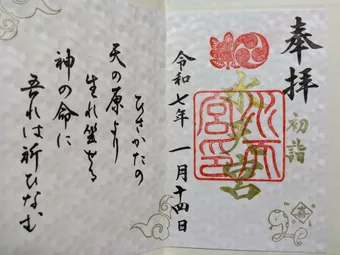 奉拝
初詣
水天宮
水天
宮印
令和七年 一月十四日
ひさかたの
天の原より
生れ坐せる
神の命に
吾れは祈ひなむ